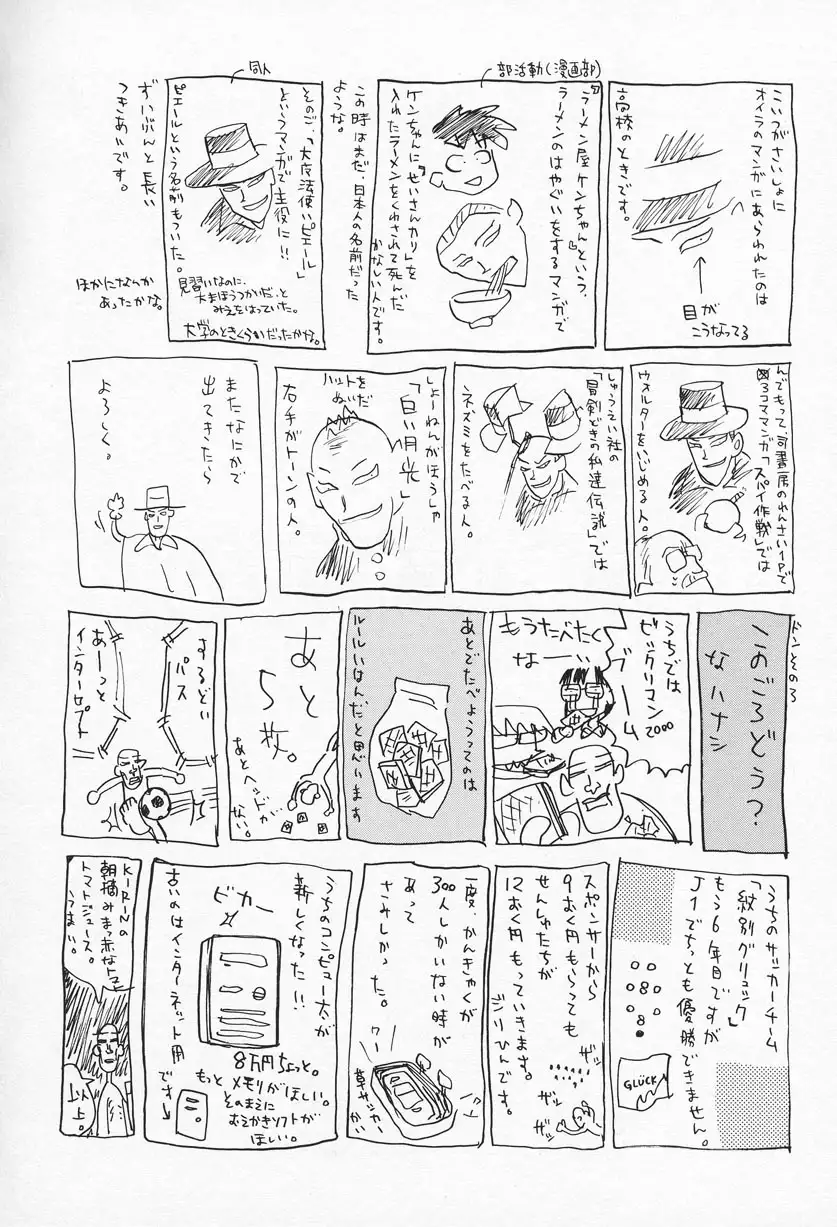 こいつがさいしょに
オイラのマンガにあらわれたのは
高校のときです。
目が
こうなってる
部活動(漫画部)
「ラーメン屋ケンちゃん」という、
ラーメンのはやぐいをするマンガで
ケンちゃんに「せいさんカリ」を
入れたラーメンをくわされて死んだ
かなしい人です。
この時はまだ、日本人の名前だった
ような。
同人
そのご、「大魔法使いピエール」
というマンガで主役に!!
ピエールという名前もついた。
見習いなのに、
大まほうつかいだ、と
みえをはっていた。
大学のときくらいだったかな。
ずいぶんと長い
つきあいです。
ほかになんか
あったかな。
んでもって、司書房のれんさい1Pで
3コママンガ「スパイ作戦」では
ウォルターをいじめる人。
しゅうえい社の
「冒剣どきの私達伝説」では
ネズミをたべる人。
しょーねんがほうしゃ
「白い月光」
ハットを
ぬいだ
右手がトーンの人。
またなにかで
出てきたら
よろしく。
ドンその3
このごろどう?
なハナシ
うちでは
ビックリマン
2000
ブーム
もうたべたく
なーい
あとでたべようってのは
ルールいはんだと思います
あと
5枚。
あとヘッドが
ない。
するどい
パス
あーっと
インターセプト
うちのサッカーチーム
「紋別グリュック」
もう6年目ですが
J1でちっとも優勝できません。
GLÜCK
スポンサーから
9おく円もらっても
せんしゅたちが
12おく円もっていきます。
ヨリひんです。
ザッ
ザッ
ザッ
一度、かんきゃくが
300人しかいない時が
あって
さみしかった。
ワー
草サッカー
かい
うちのコンピュー太が
新しくなった!!
ピカー
8万円ちょっと。
もっとメモリがほしい。
そのまえに
おえかきソフトが
ほしい。
古いのはインターネット用
です→
KIRINの
朝摘みまっ赤なトマト
トマトジュース。
うまい。
以上。